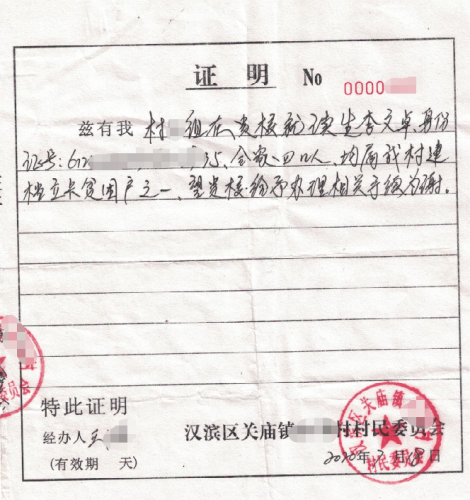 证 明 No 0000
兹有我 村 组在贵校就读生李文卓,身份
证号:612 35,全家四口人,均属我村建
档立卡贫困户之一,望贵校给予办理相关手续为谢。
特此证明
经办人 王
(有效期 天)
汉滨区关庙镇 村村民委员会
2020年 月 日
汉滨区关庙镇
村民委员会
员会